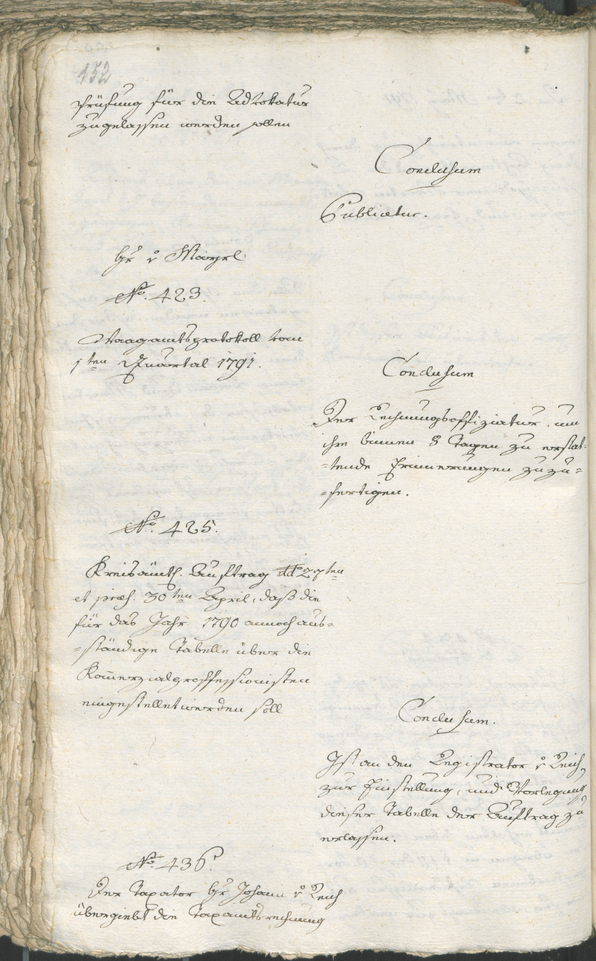 152
Prüfung für die Advokatur
zugelassen werden sollen
Conclusum
Publicetur.
Hr v Mayrl
No. 423.
Waagamtsprotokoll vom
1ten Quartal 1791.
Conclusum
Der Rechnungsoffiziatur, um
ihre binnen 8 Tagen zu erstat-
-tende Erinnerungen zuzu-
-fertigen.
No. 425.
Kreisämtl. Auftrag dd 27ten
et præs. 30ten April, daß die
für das Jahr 1790 annoch aus-
-ständige Tabelle über die
Kommerzialprofessionisten
eingestellet werden soll
Conclusum.
Ist an den Registrator v Reich,
zur Einstellung, und Vorlegung
dieser Tabelle der Auftrag zu
erlassen.
No. 436.
Der Taxator Hr Johann v Reich
übergiebt die Taxamtsrechnung